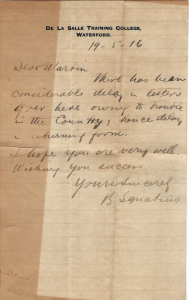 DE LA SALLE TRAINING COLLEGE,
WATERFORD.
19-5-16
Dear Martin
There has been
considerable delay in letters
over here owing to trouble
in the Country, hence delay
in returning form.
I hope you are very well.
Wishing you success
Yours Sincerely
B. Ignatius